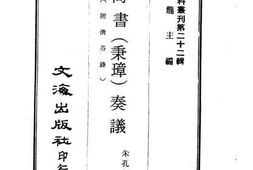 料叢刊第二十二輯
龍主編
尚書（秉璋）奏議
（附清芬錄）
朱孔
文海出版社印行